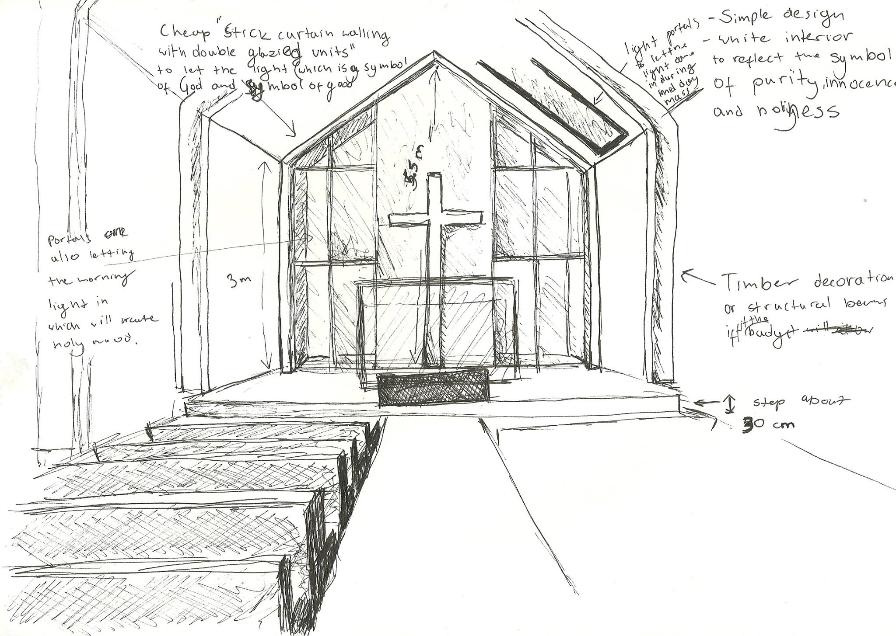 Cheap "Stick curtain walling
with double glazed units"
to let the light (which is a symbol
of God and symbol of good
light portals
to let the
light come
in during
mid day
mass
- Simple design
- white interior
to reflect the symbol
of purity, innocence
and holyness
5.5 m
portals are
also letting
the morning
light in
which will create
holy mood.
3 m
Timber decoration
or structural beams
if the budget
step about
30 cm